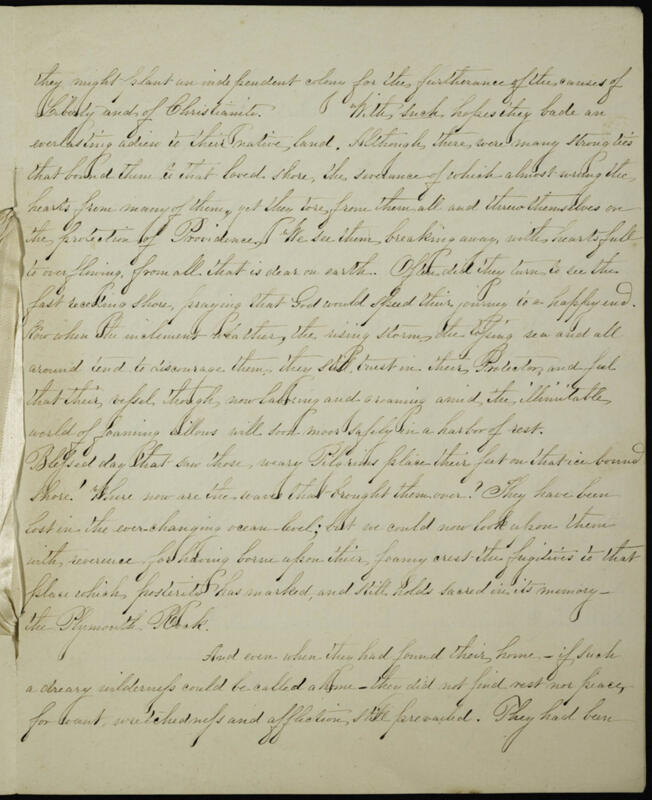 they might plant an independent colony for the furtherance of the causes of
Liberty and of Christianity. With such hopes they bade an
everlasting adieu to their native land. Although there were many strong ties
that bound them to that loved shore, the severance of which almost wrung the
hearts from many of them, yet they tore from them all and threw themselves on
the protection of Providence. We see them breaking away, with hearts full
to overflowing, from all that is dear on earth. Often did they turn to see the
fast receding shore, praying that God would speed their journey to a happy end.
Now when the inclement weather, the rising storm, the tossing sea and all
around tend to discourage them, they still trust in their Protector, and feel
that their vessel though now laboring and groaning amid the illimitable
world of foaming billows will soon moor safely in a harbor of rest.
Blessed day that saw those weary Pilgrims place their feet on that ice bound
shore! Where now are the waves that brought them over? They have been
lost in the ever-changing ocean-level; but we could now look upon them
with reverence for having borne upon their foamy crest the fugitives to that
place which posterity has marked, and still holds sacred in its memory—
the Plymouth Rock.
And even when they had found their home — if such
a dreary wilderness could be called a home — they did not find rest nor peace,
for want, wretchedness and affliction still prevailed. They had been